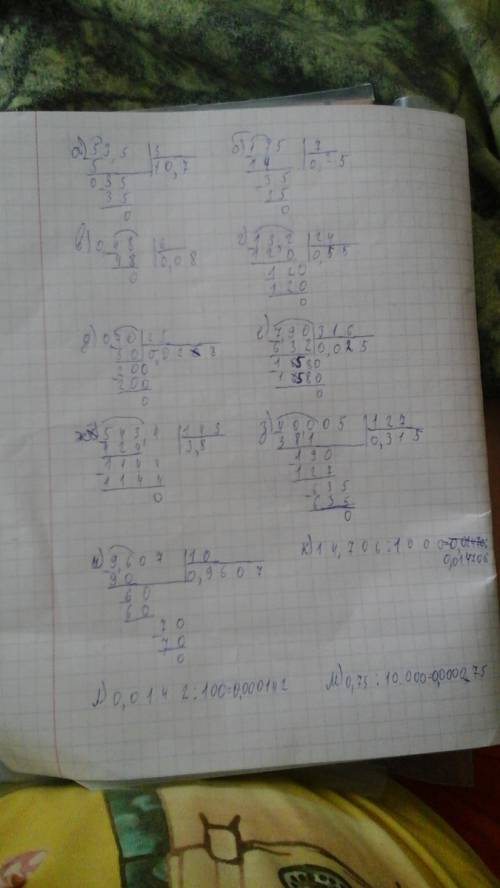 а) 53,5 | 5
5 | 10,7
035
35
0
б) 1,75 | 7
14 | 0,25
35
35
0
в) 0,48 | 6
48 | 0,08
0
г) 13,2 | 24
120 | 0,55
120
120
0
д) 0,70 | 25
50 | 0,028
200
200
0
е) 7,90 | 316
632 | 0,025
1580
1580
0
543,4 | 143
429 | 3,8
1144
1144
0
з) 40,005 | 127
381 | 0,315
190
127
635
635
0
и) 9,607 | 10
90 | 0,9607
60
60
70
70
0
к) 14,706:1000=
0,014706
л) 0,0142:100=0,000142
м) 0,75:10.000=0,000075